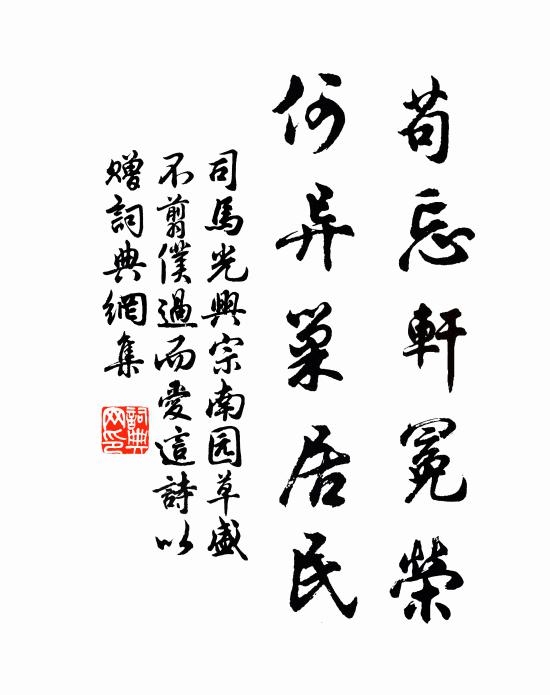 苟忘軒冕榮
何异巢居民
司馬光興宗南园草盛
不剪僕過而愛這詩以
贈詞典網集
詞典
网印